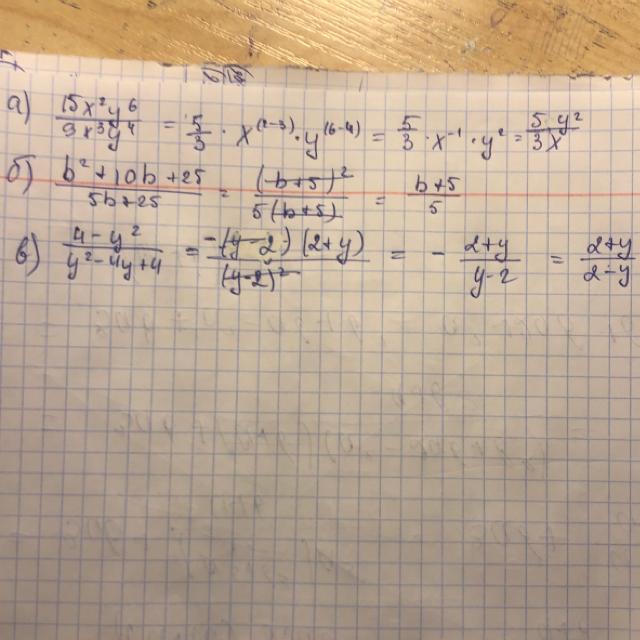 а) 15x²y⁶/9x³y⁴ = 5/3 · x⁽²⁻³⁾ · y⁽⁶⁻⁴⁾ = 5/3 · x⁻¹ · y² = 5y²/3x
б) b²+10b+25/5b+25 = (b+5)²/5(b+5) = b+5/5
в) 4-y²/y²-4y+4 = -(y-2)(2+y)/(y-2)² = - 2+y/y-2 = 2+y/2-y